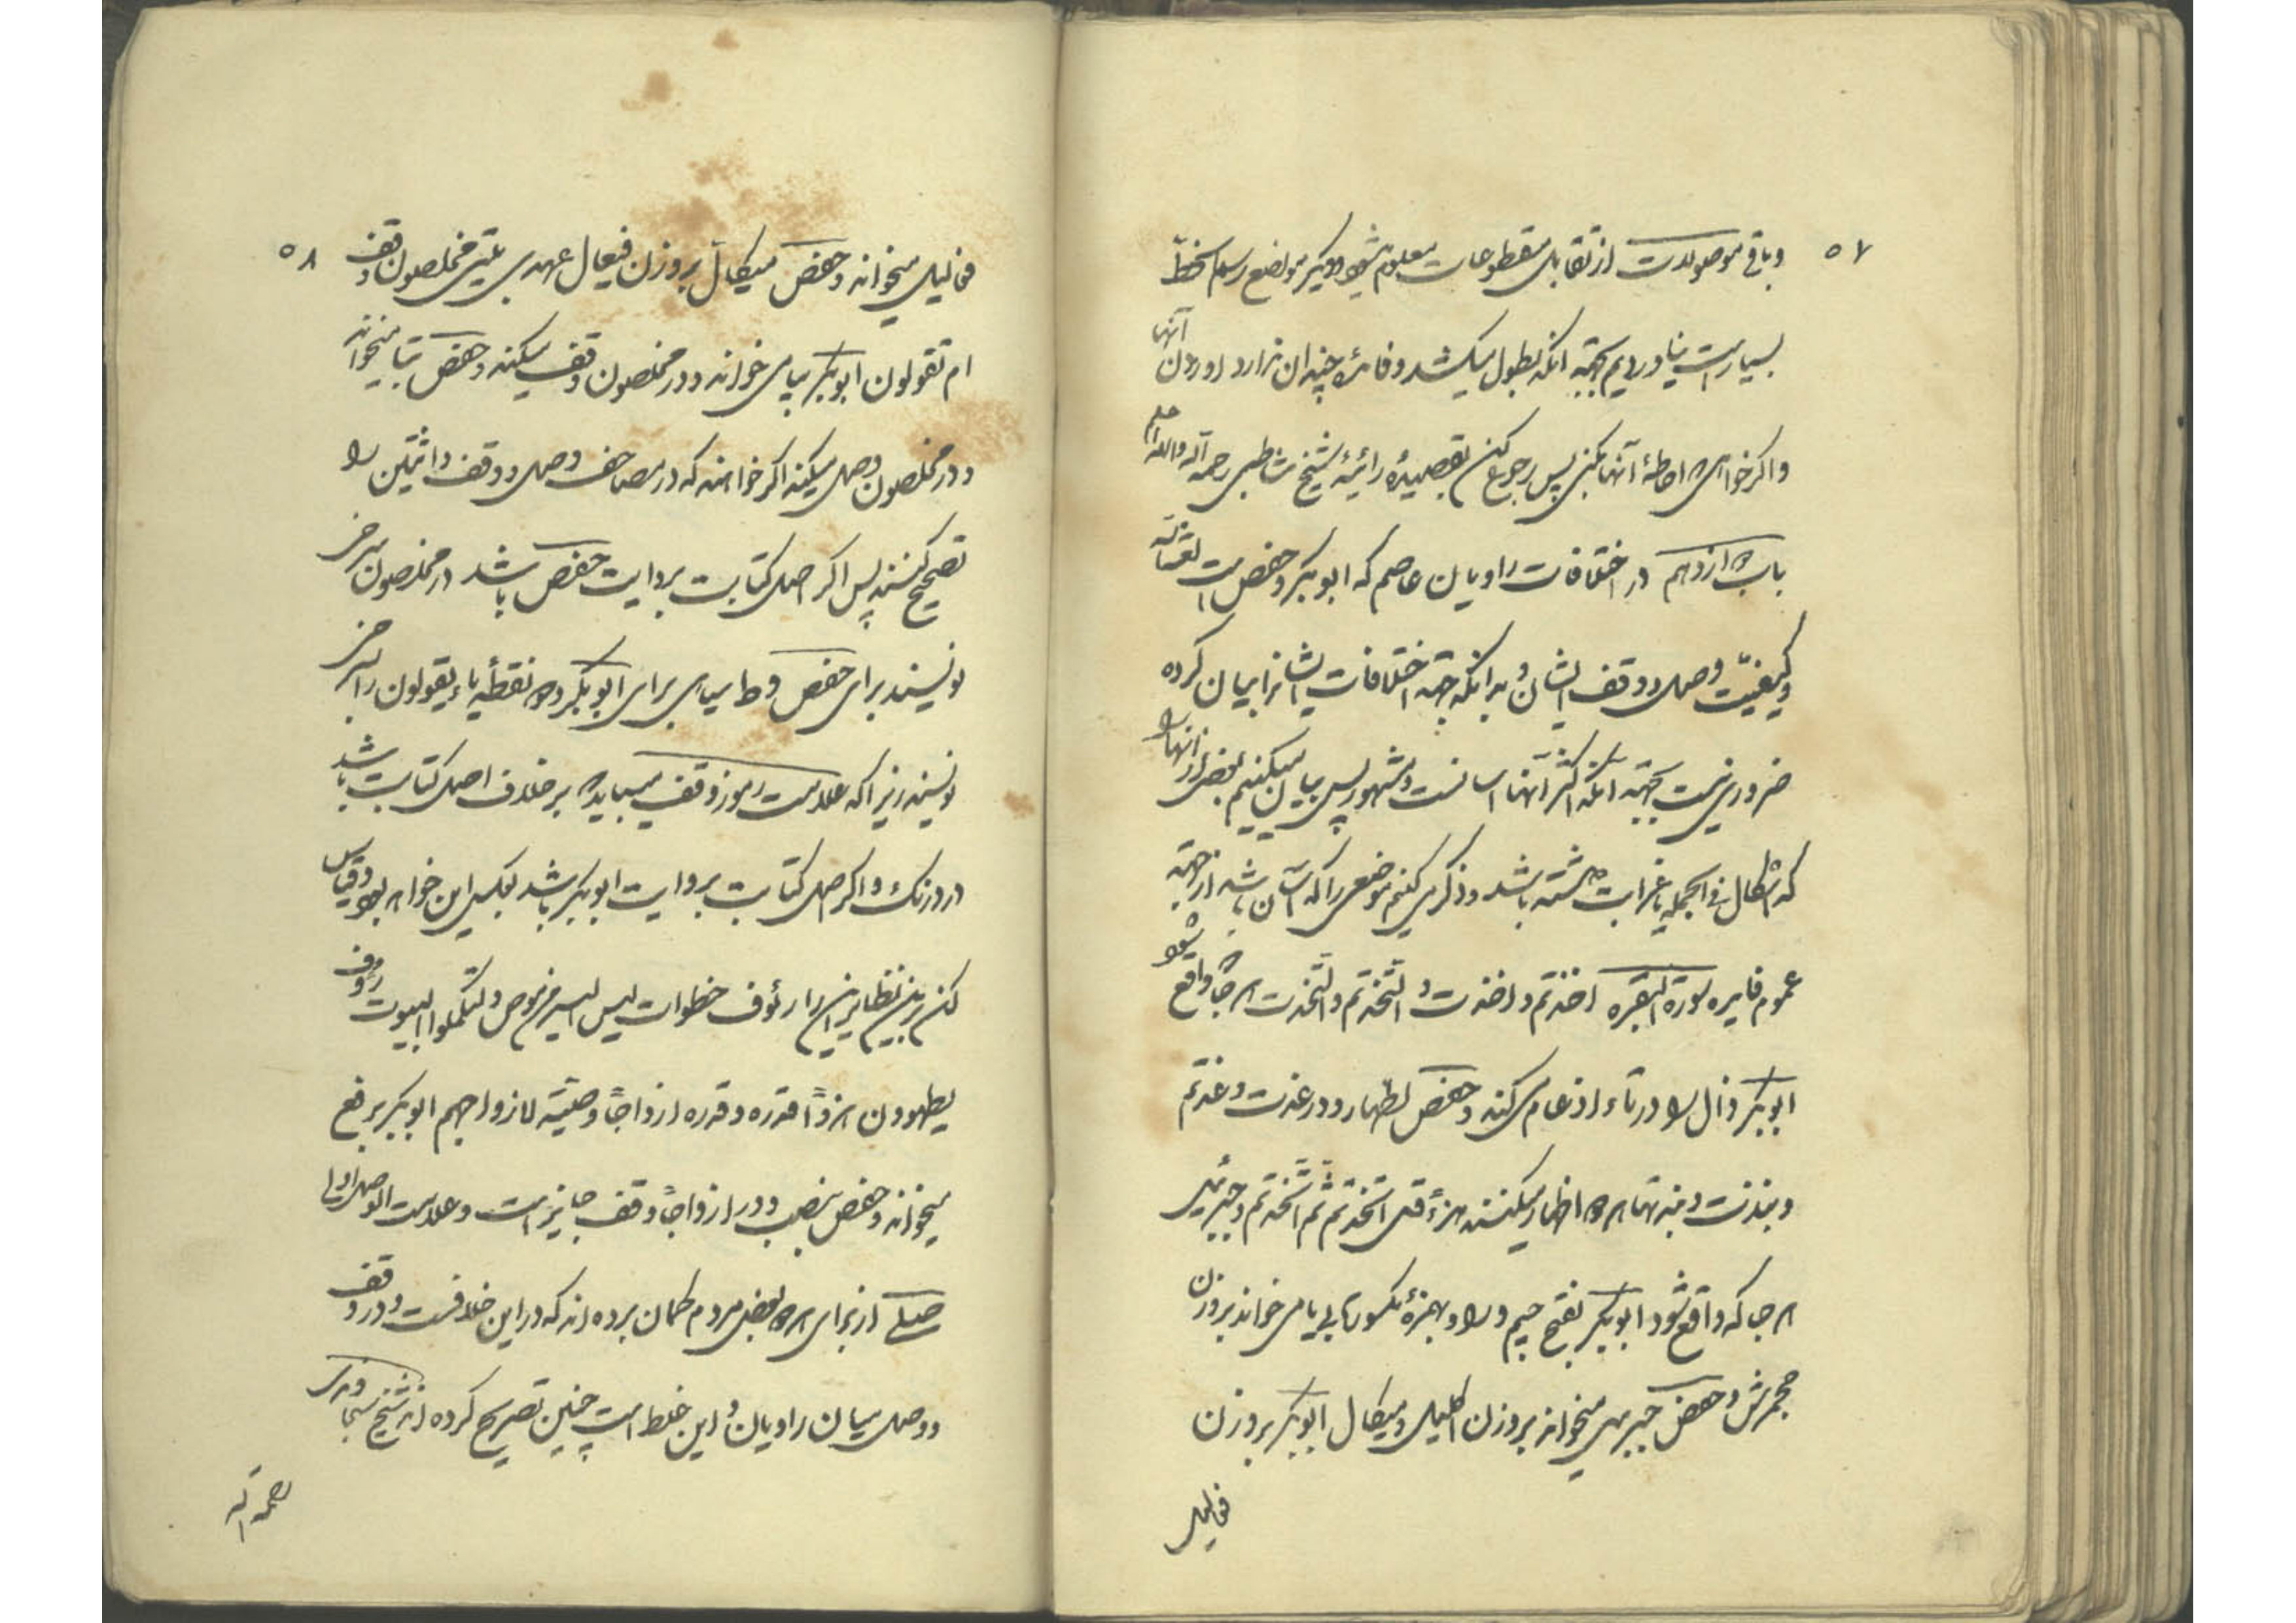 ۵۷
و باقی موصولات از تقابل مقطوعات معلوم میشود و دیگر مواضع رسم الخط
بسیار است نیاوردیم بجهة آنکه بطول میکشد و فائده چندان ندارد آوردن آنها
و اگر خواهی احاطهٔ آنها کنی پس رجوع کن بقصیدهٔ رائیهٔ شیخ شاطبی رحمه الله والله اعلم
باب یازدهم در اختلافات راویان عاصم که ابوبکر و حفص است
و کیفیّت وصل و وقف ایشان و بدانکه جمیع اختلافات ایشانرا بیان کرده
ضرور نیست بجهة آنکه اکثر آنها آسانست و مشهور پس بیان میکنیم بعضی از آنها را
که اشکال فی الجمله یا غرابت داشته باشد و ذکر می کنیم موضعی را که آسان باشد از جهة
عموم فایده سورة البقره اخذتم و اخذت و اتّخذتم و اتّخذت هر جا واقع شود
ابوبکر ذال را در تاء ادغام می کند و حفص اظهار و در عذت و عذتم
و نبذت و نبذتها هر دو اظهار میکنند هزءً قل اتّخذتم ثمّ اتّخذتم و جبرئیل
هر جا که واقع شود ابوبکر بفتح جیم و را و بهمزهٔ مکسوره بی یا می خواند بر وزن
جحمرش و حفص جبریل میخواند بر وزن اکلیل و میکال ابوبکر بر وزن
فعالیل
۵۸
فعالیل میخواند و حفص میکال بر وزن فیعال عهدی بیتی مخلصون وقف
ام تقولون ابوبکر بیا می خواند و در مخلصون وقف میکند و حفص بتا میخواند
و در مخلصون وصل میکند اگر خواهند که در مصاحف وصل و وقف و اثنین را
تصحیح کنند پس اگر اصل کتابت بروایت حفص باشد در مخلصون سرخ
نویسند برای حفص و ط سیاهی برای ابوبکر و دو نقطهٔ یاء یقولون را بسرخی
نویسند زیرا که علامت رموز وقف میباید که بر خلاف اصل کتابت باشد
در رنگ و اگر اصل کتابت بروایت ابوبکر باشد بعکس این خواهد بود و قیاس
کن برین نظایر این را رؤف خطوات لیس البر موص و لتکملوا البیوت رؤف
یطهرن هزوًا قدره و قدره ازواجًا وصیّة لازواجهم ابوبکر برفع
میخواند و حفص بنصب و در ازواجًا وقف جایز است و علامت الوصل اولی
صلی از برای هر دو بعضی مردم گمان برده اند که در این خلافست و در وقف
و وصل میان راویان و این غلط است چنین تصریح کرده اند شیخ سجاوندی
رحمه الله